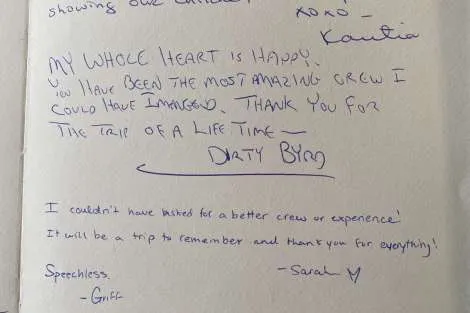 showing our
xoxo –
MY WHOLE HEART IS HAPPY.
YOU HAVE BEEN THE MOST AMAZING CREW I
COULD HAVE IMAGENED. THANK YOU FOR
THE TRIP OF A LIFE TIME —
DIRTY BYRD
I couldn't have asked for a better crew or experience!
It will be a trip to remember and thank you for everything!
Speechless.
- Sarah
- Griff